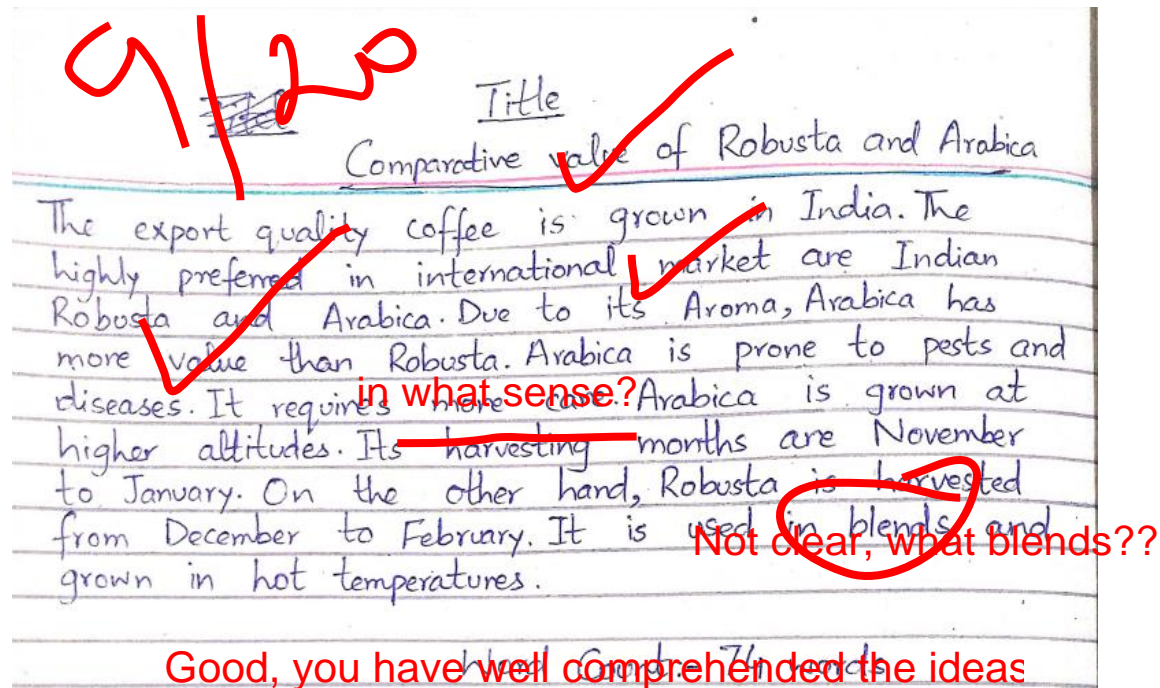 9/20
Title
Comparative value of Robusta and Arabica
The export quality coffee is grown in India. The
highly preferred in international market are Indian
Robusta and Arabica. Due to its Aroma, Arabica has
more value than Robusta. Arabica is prone to pests and
in what sense?
diseases. It requires more care. Arabica is grown at
higher altitudes. Its harvesting months are November
to January. On the other hand, Robusta is harvested
from December to February. It is used in blends and
Not clear, what blends??
grown in hot temperatures.
Word Count:- 74 words
Good, you have well comprehended the ideas